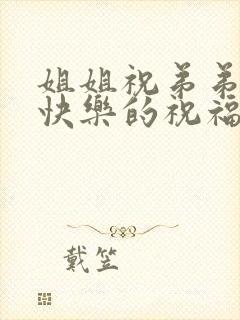 姐姐祝弟弟
快樂的祝福
戴笠